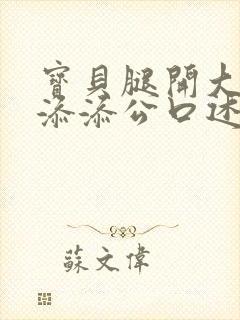 寶貝腿開大
添添公口述
蘇文偉